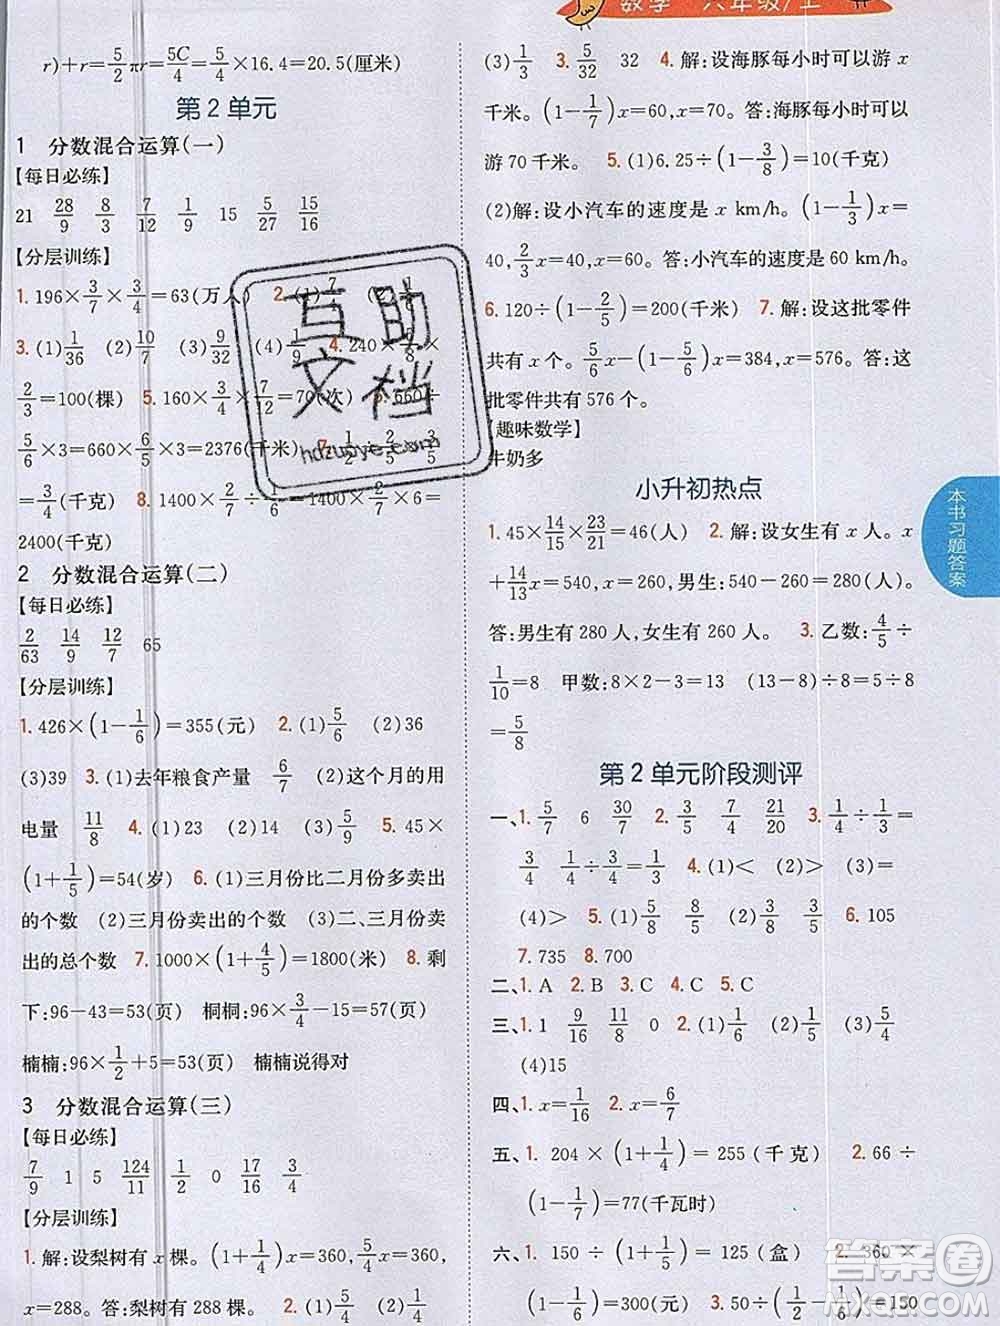 r)+r=5/2πr=5C/4=5/4×16.4=20.5(厘米)
第2单元
1 分数混合运算(一)
【每日必练】
21 28/9 8/3 7/12 1/9 15 5/27 15/16
【分层训练】
1. 196×3/7×3/4=63(万人) 2. (1)7/
3. (1)1/36 (2)10/7 (3)9/32 (4)1/9 4. 240×5/8×
2/3=100(棵) 5. 160×3/4×7/12=70(次) 6. 660÷
5/6×3=660×6/5×3=2376(千米) 7. 1/2×2/5÷3/5
=3/4(千克) 8. 1400×2/7÷1/6=1400×2/7×6=
2400(千克)
2 分数混合运算(二)
【每日必练】
2/63 14/9 12/7 65
【分层训练】
1. 426×(1-1/6)=355(元) 2. (1)5/6 (2)36
(3)39 3. (1)去年粮食产量 6/7 (2)这个月的用
电量 11/8 4. (1)23 (2)14 (3)5/9 5. 45×
(1+1/5)=54(岁) 6. (1)三月份比二月份多卖出
的个数 (2)三月份卖出的个数 (3)二、三月份卖
出的总个数 7. 1000×(1+4/5)=1800(米) 8. 剩
下:96-43=53(页) 桐桐:96×3/4-15=57(页)
楠楠:96×1/2+5=53(页) 楠楠说得对
3 分数混合运算(三)
【每日必练】
7/9 1 5 124/11 1/2 0 17/16 3/4
【分层训练】
1. 解:设梨树有x棵。(1+1/4)x=360,5/4x=360,
x=288。答:梨树有288棵。 2. (1)5/4 (2)1/6
数学 六年级/上
(3)1/3 3. 5/32 32 4. 解:设海豚每小时可以游x
千米。(1-1/7)x=60,x=70。答:海豚每小时可以
游70千米。 5. (1)6.25÷(1-3/8)=10(千克)
(2)解:设小汽车的速度是x km/h。(1-1/3)x=
40,2/3x=40,x=60。答:小汽车的速度是60 km/h。
6. 120÷(1-2/5)=200(千米) 7. 解:设这批零件
共有x个。5/6x-(1-5/6)x=384,x=576。答:这
批零件共有576个。
【趣味数学】
牛奶多
小升初热点
1. 45×14/15×23/21=46(人) 2. 解:设女生有x人。x
+14/13x=540,x=260,540-260=280(人)。
答:男生有280人,女生有260人。 3. 乙数:4/5÷
1/10=8 甲数:8×2-3=13 (13-8)÷8=5÷8
=5/8
第2单元阶段测评
一、1. 5/7 6 30/7 2. 3/5 7/4 21/20 3. 1/4÷1/3=
3/4 1/4÷3/4=1/3 4. (1)< (2)> (3)=
(4)> 5. (1)5/8 8/5 (2)7/2 2/7 6. 105
7. 735 8. 700
二、1. A 2. B 3. C 4. A 5. C
三、1. 1 9/16 11/8 0 2. (1)1/6 (2)2/3 (3)5/4
(4)15
四、1. x=1/16 2. x=6/7
五、1. 204×(1+1/4)=255(千克) 2. 66÷
(1-1/7)=77(千瓦时)
六、1. 150÷(1+1/5)=125(盒) 2. 360×
(1-1/6)=300(元) 3. 50÷(1/2-1/6)=150
本书习题答案
互助文档
hdzuoye.com
答案圈